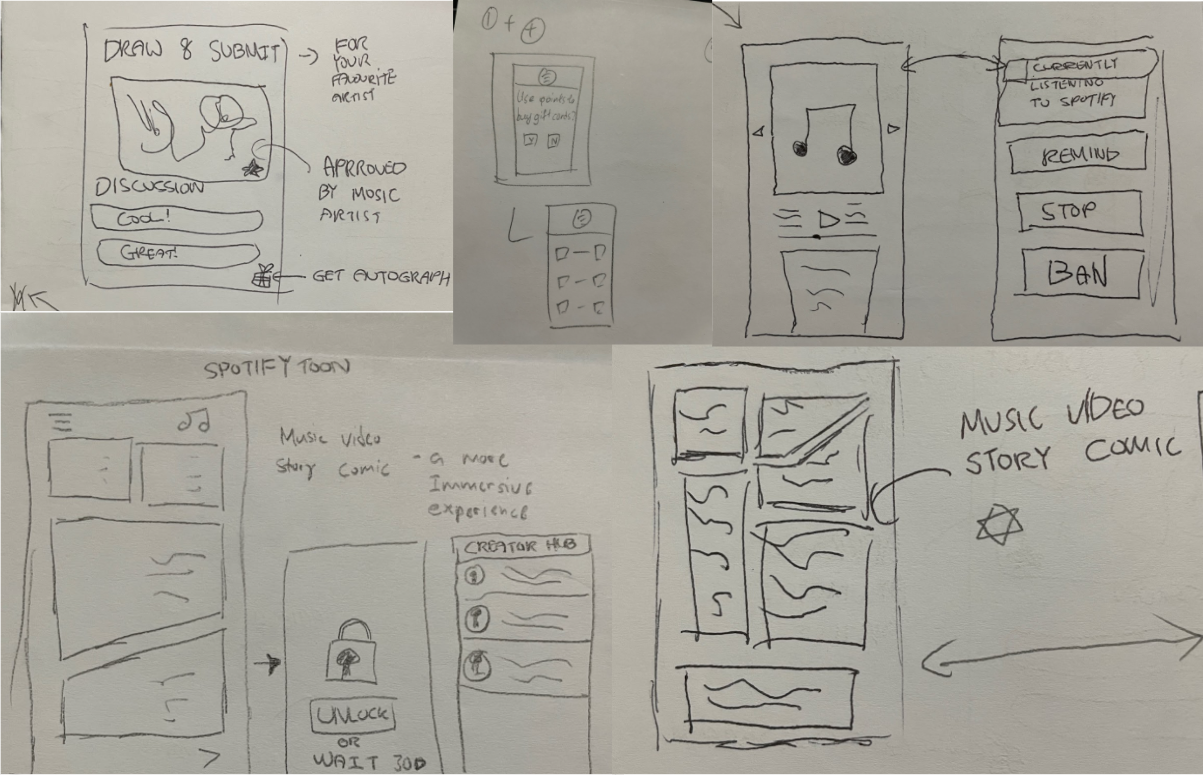 DRAW & SUBMIT
FOR
YOUR
FAVOURITE
ARTIST
APRROVED
BY MUSIC
ARTIST
DISCUSSION
COOL!
GREAT!
GET AUTOGRAPH
1 + 4
Use points to
buy gift cards?
Y N
CURRENTLY
LISTENING
TO SPOTIFY
REMIND
STOP
BAN
SPOTIFY TOON
Music video
Story Comic - a more
Immersive
experience
CREATOR HUB
UNLOCK
OR
WAIT 30D
MUSIC VIDEO
STORY COMIC